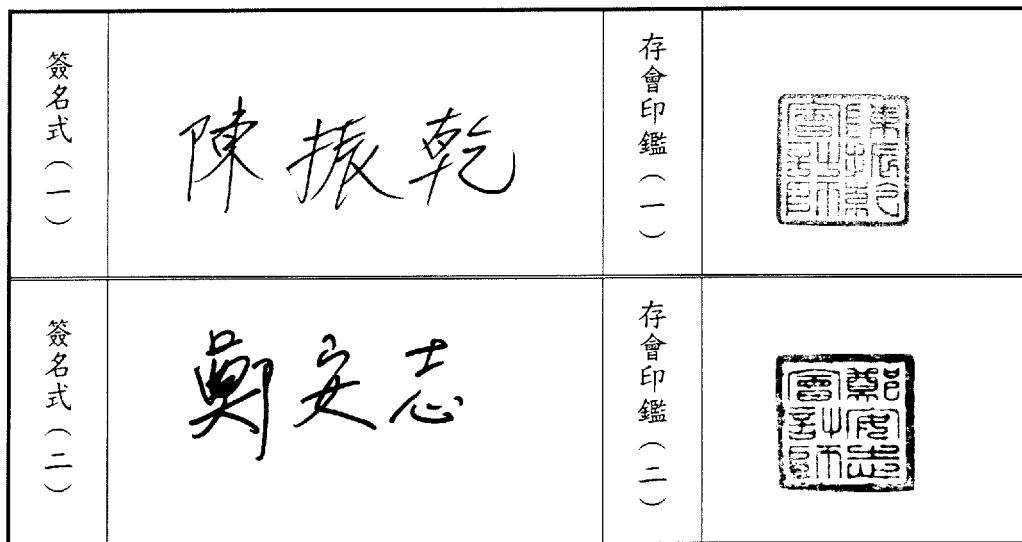 簽名式(一)
陳振乾
存會印鑑(一)
簽名式(二)
鄭安志
存會印鑑(二)
鄭安志會計師